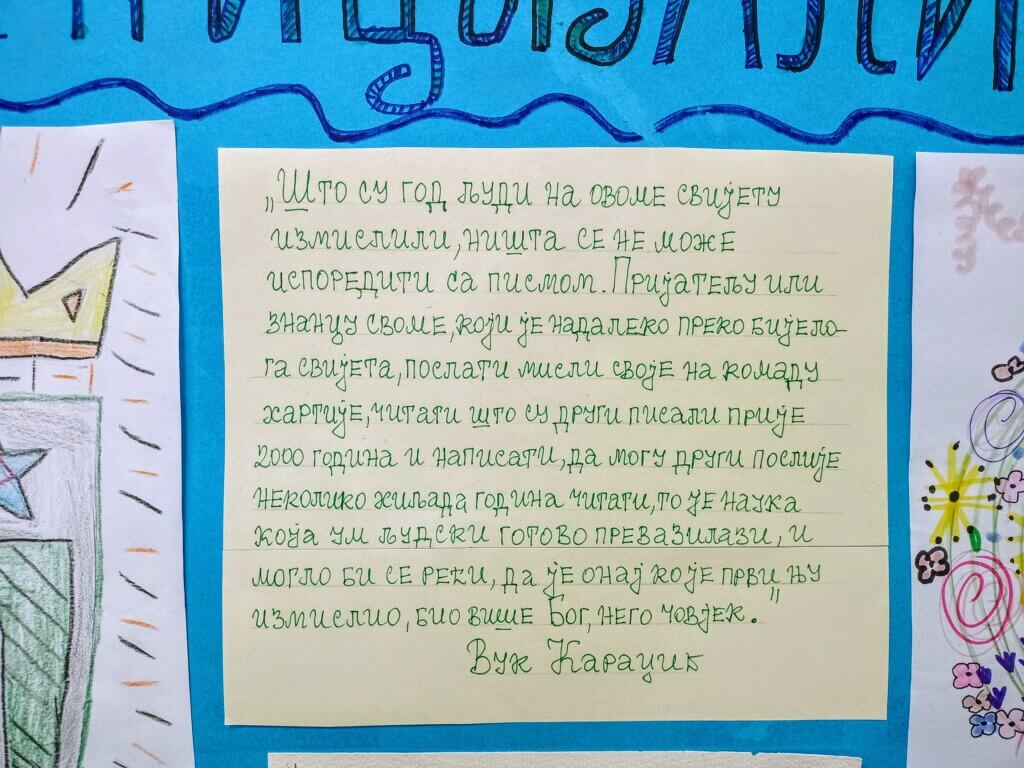 „Што су год људи на овоме свијету
измислили, ништа се не може
испоредити са писмом. Пријатељу или
знанцу своме, који је надалеко преко бијело-
га свијета, послати мисли своје на комаду
хартије, читати што су други писали прије
2000 година и написати, да могу други послије
неколико хиљада година читати, то је наука
која ум људски готово превазилази, и
могло би се рећи, да је онај које први њу
измислио, био више Бог, него човјек.“
Вук Караџић